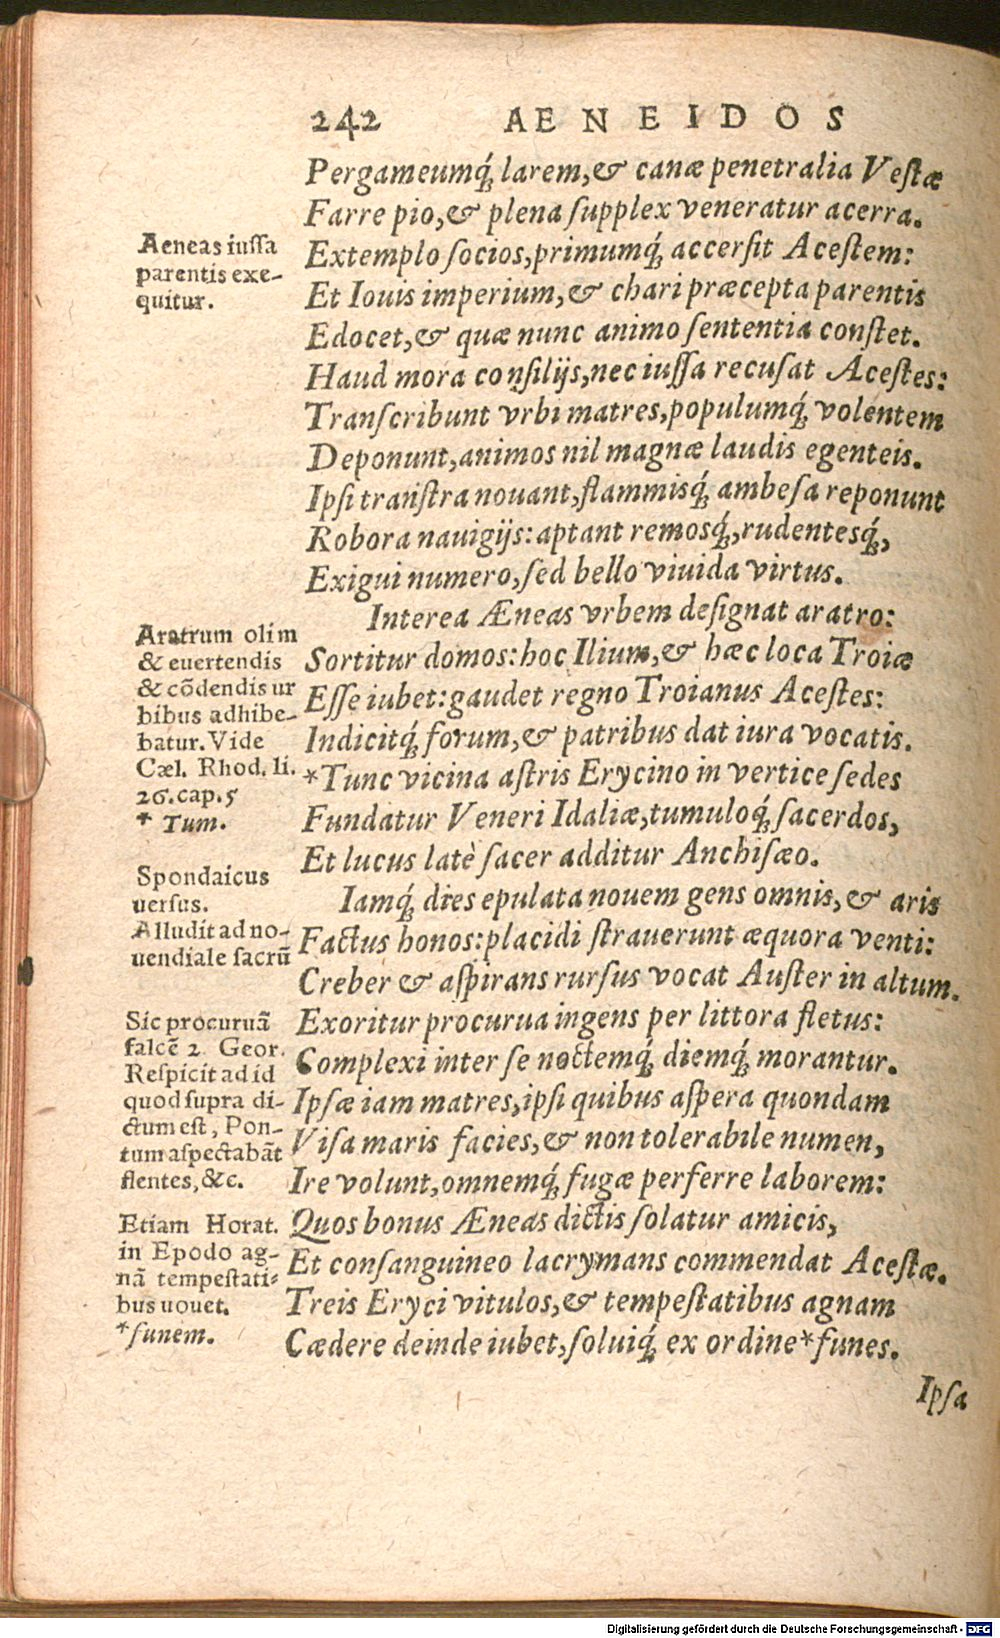 242 AENEIDOS
Pergameumq́; larem, & canæ penetralia Vestæ
Farre pio, & plena supplex veneratur acerra.
Aeneas iussa
parentis exe-
quitur.
Extemplo socios, primumq́; accersit Acestem:
Et Iouis imperium, & chari præcepta parentis
Edocet, & quæ nunc animo sententia constet.
Haud mora consilijs, nec iussa recusat Acestes:
Transcribunt vrbi matres, populumq́; volentem
Deponunt, animos nil magnæ laudis egenteis.
Ipsi transtra nouant, flammisq́; ambesa reponunt
Robora nauigijs: aptant remosq́;, rudentesq́;,
Exigui numero, sed bello viuida virtus.
Interea Æneas vrbem designat aratro:
Aratrum olim
& euertendis
& cõdendis ur
bibus adhibe-
batur. Vide
Cæl. Rhod. li.
26. cap. 5
* Tum.
Sortitur domos: hoc Ilium, & hæc loca Troiæ
Esse iubet: gaudet regno Troianus Acestes:
Indicitq́; forum, & patribus dat iura vocatis.
*Tunc vicina astris Erycino in vertice sedes
Fundatur Veneri Idaliæ, tumuloq́; sacerdos,
Et lucus latè sacer additur Anchisæo.
Spondaicus
uersus.
Alludit ad no-
uendiale sacrũ
Iamq́; dies epulata nouem gens omnis, & aris
Factus honos: placidi strauerunt æquora venti:
Creber & aspirans rursus vocat Auster in altum.
Exoritur procurua ingens per littora fletus:
Sic procuruã
falcẽ 2 Geor.
Respicit ad id
quod supra di-
ctum est, Pon-
tum aspectabãt
flentes, &c.
Complexi inter se noctemq́; diemq́; morantur.
Ipsæ iam matres, ipsi quibus aspera quondam
Visa maris facies, & non tolerabile numen,
Ire volunt, omnemq́; fugæ perferre laborem:
Quos bonus Æneas dictis solatur amicis,
Etiam Horat.
in Epodo ag-
nã tempestati-
bus uouet.
*funem.
Et consanguineo lacrymans commendat Acestæ.
Treis Eryci vitulos, & tempestatibus agnam
Cædere deinde iubet, soluiq́; ex ordine *funes.
Ipsa
Digitalisierung gefördert durch die Deutsche Forschungsgemeinschaft - DFG